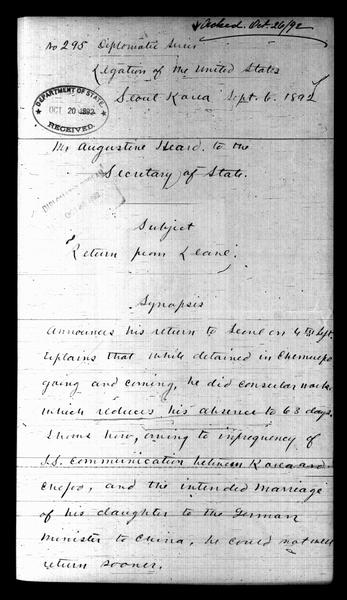 Acked. Oct. 26/92
No 295 Diplomatic Series
Legation of the United States
Seoul Korea Sept. 6. 1892
DEPARTMENT OF STATE
OCT 20 1892
RECEIVED.
Mr Augustine Heard. to the
Secretary of State.
Subject
Return from Leave.
Synopsis
Announces his return to Seoul on 4th Sept.
Explains that while detained in Chemulpo
going and coming, he did consular work
which reduces his absence to 63 days.
Shows how, owing to infrequency of
S.S. communication between Korea and
Chefoo, and the intended marriage
of his daughter to the German
Minister to China, he could not well
return sooner.